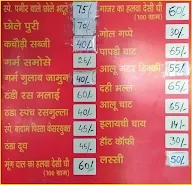 स्पे. पनीर वाले छोले भटूरे 75/-
छोले पुरी 70/-
कचौड़ी सब्जी 40/-
गर्म समोसे 25/-
गर्म गुलाब जामुन 40/-
ठंडी रस मलाई 60/-
ठंडा स्पंज रसगुल्ला 40/-
स्पे. बादाम मिल्क केसरयुक्त 45/-
ठंडा दूध 45/-
मूंग दाल का हलवा देसी घी 60/-
(100 ग्राम)
गाजर का हलवा देसी घी 60/-
(100 ग्राम)
गोल गप्पे 30/-
पापड़ी चाट 65/-
आलू मटर टिक्की 55/-
दही भल्ला 65/-
आलू चाट 65/-
इलायची चाय 14/-
हॉट कॉफी 30/-
लस्सी 50/-